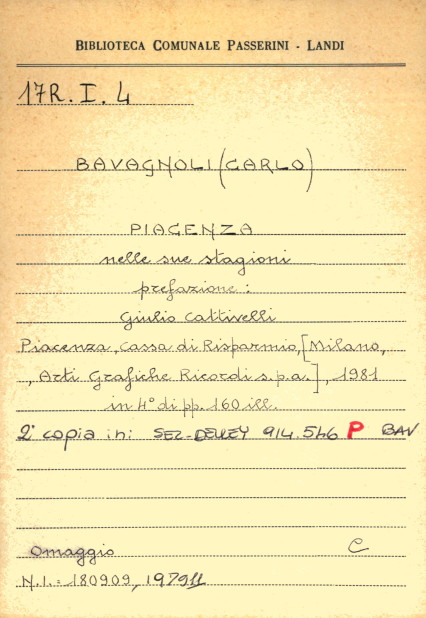 BIBLIOTECA COMUNALE PASSERINI - LANDI
17R. I. 4
BAVAGNOLI (CARLO)
PIACENZA
nelle sue stagioni
prefazione :
Giulio Cattivelli
Piacenza, Cassa di Risparmio, [Milano,
, Arti Grafiche Ricordi s.p.a.], 1981
in 4° di pp. 160 ill.
2ª copia in: SEZ-DELLEY 914.546 P BAV
Omaggio C
N.I. = 180909, 197911